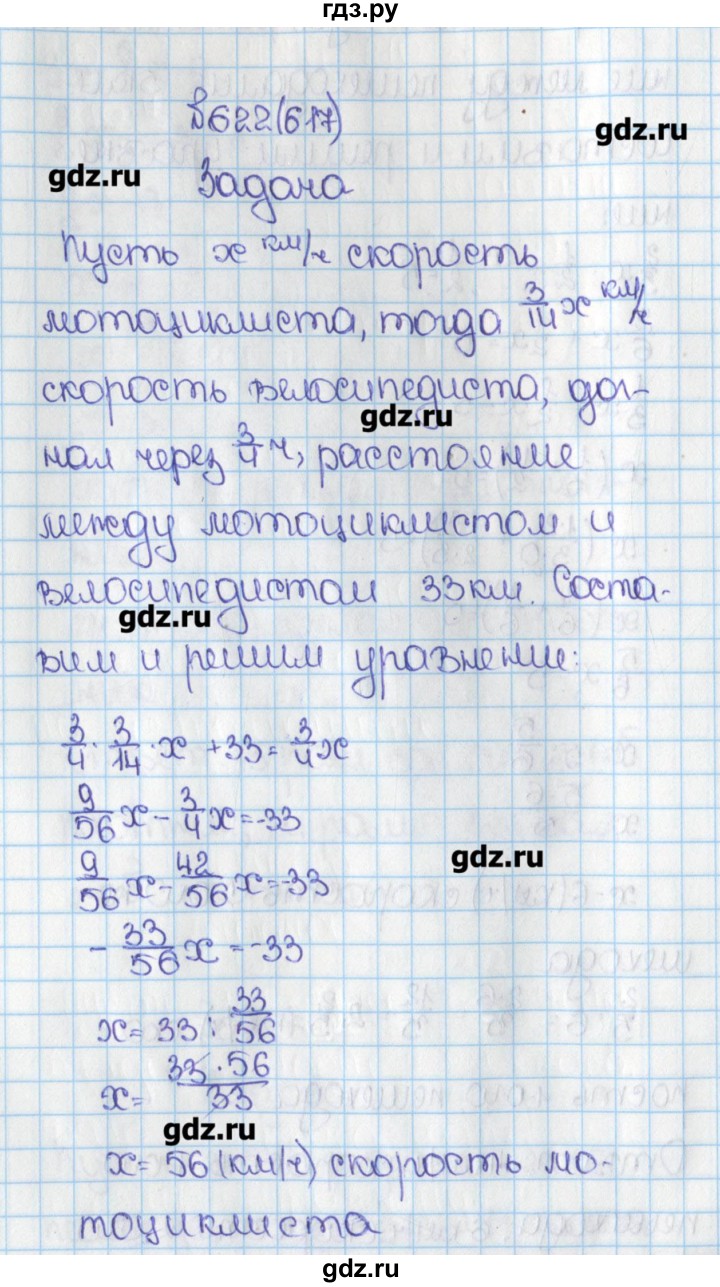 гдз.ру
№622(617)
gdz.ru
gdz.ru
Задача
Пусть x км/ч скорость
мотоциклиста, тогда 3/14 x км/ч
скорость велосипедиста, дог-
gdz.ru
нал через 3/4 ч, расстояние
между мотоциклистом и
велосипедистом 33 км. Соста-
gdz.ru
вим и решим уравнение:
3/4 · 3/14 · x + 33 = 3/4 x
9/56 x - 3/4 x = -33
gdz.ru
9/56 x - 42/56 x = -33
- 33/56 x = -33
x = 33 : 33/56
x = 33 · 56/33
gdz.ru
x = 56 (км/ч) скорость мо-
тоциклиста
gdz.ru